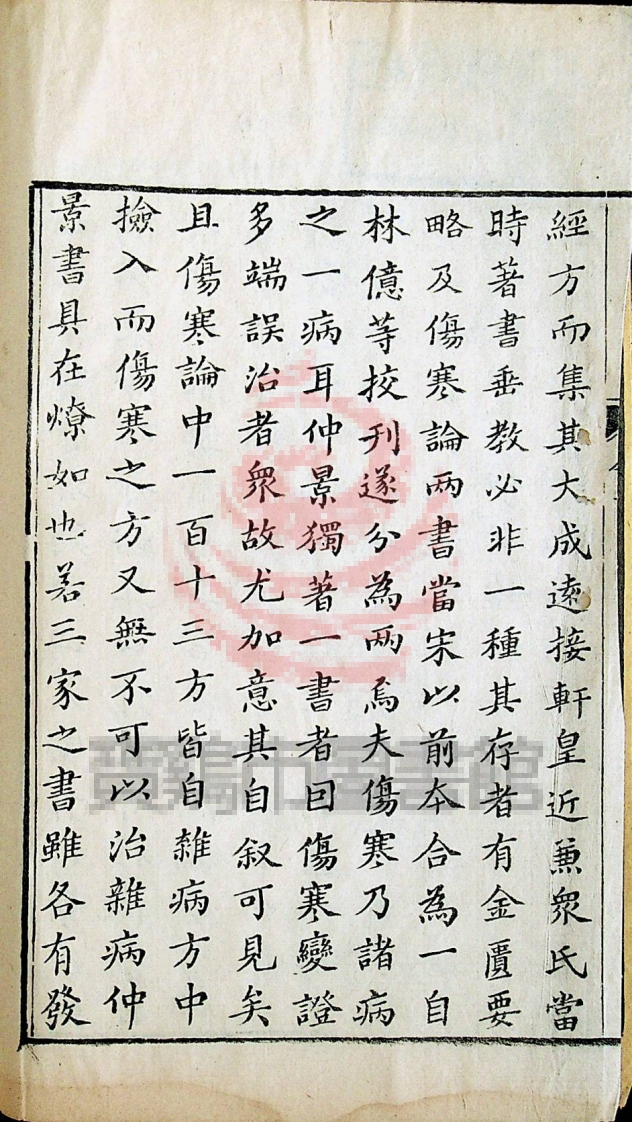 經方而集其大成遠接軒皇近兼衆氏當
時著書垂教必非一種其存者有金匱要
略及傷寒論兩書當宋以前本合為一自
林億等挍刊遂分為兩焉夫傷寒乃諸病
之一病耳仲景獨著一書者因傷寒變證
多端誤治者衆故尤加意其自叙可見矣
且傷寒論中一百十三方皆自雜病方中
撿入而傷寒之方又無不可以治雜病仲
景書具在燎如也若三家之書雖各有發
寶鷄市圖書館